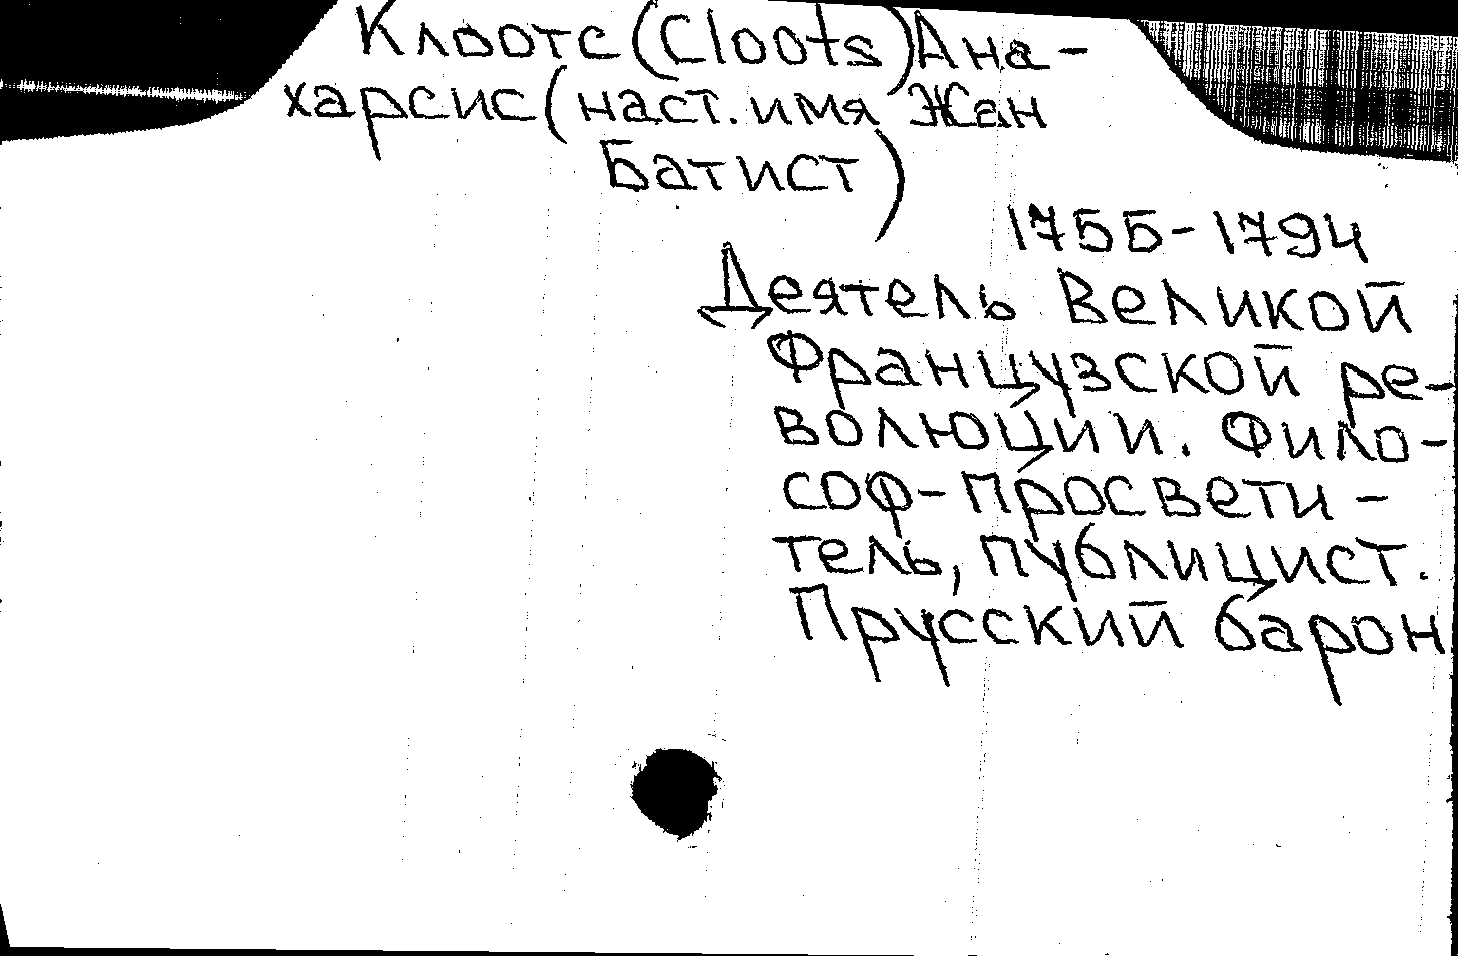 Клоотс (Cloots) Ана-
харсис (наст. имя Жан
Батист)
1755-1794
Деятель Великой
Французской ре-
волюции. Фило-
соф-просвети-
тель, публицист.
Прусский барон